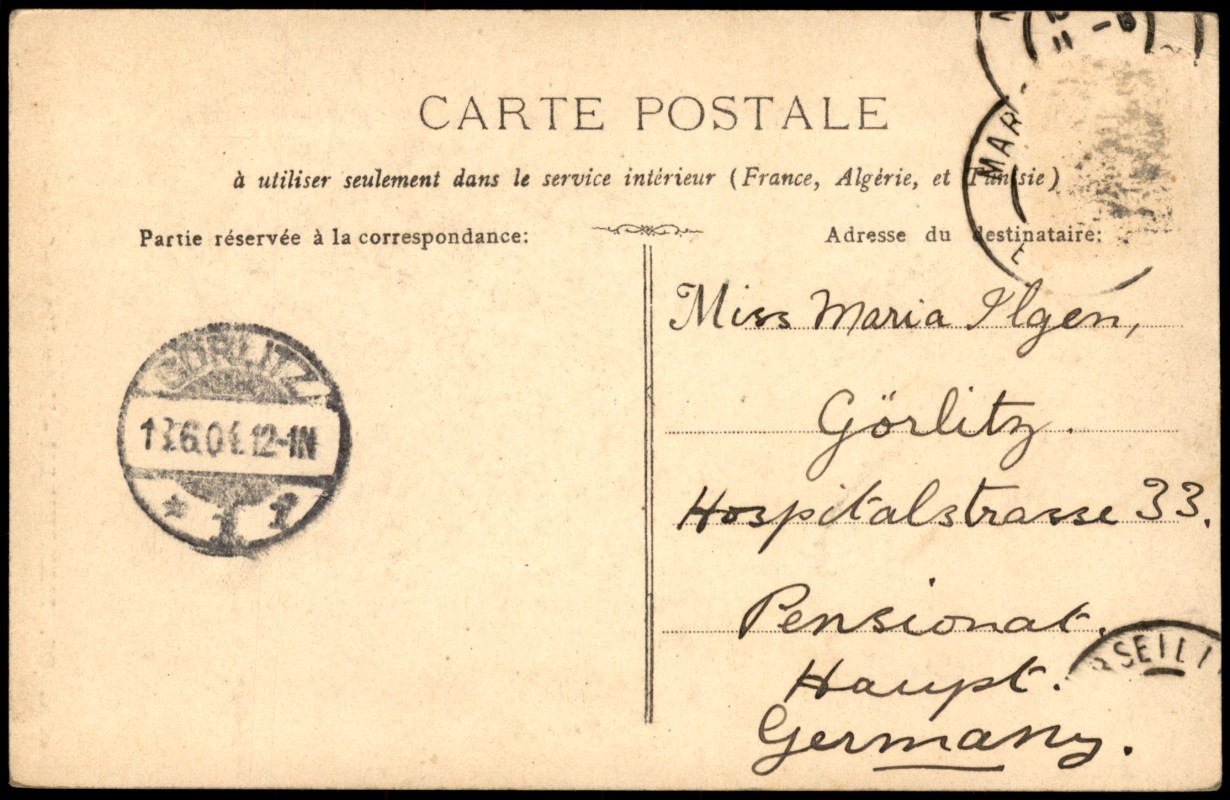 CARTE POSTALE
à utiliser seulement dans le service intérieur (France, Algérie, et Tunisie)
Partie réservée à la correspondance:
Adresse du destinataire:
MAR
Miss Maria Ilgen,
Görlitz.
Hospitalstrasse 33.
Pensionat.
Haupt.
Germany.
RSEILL
GÖRLITZ
6.04.12-1N
* 1 1